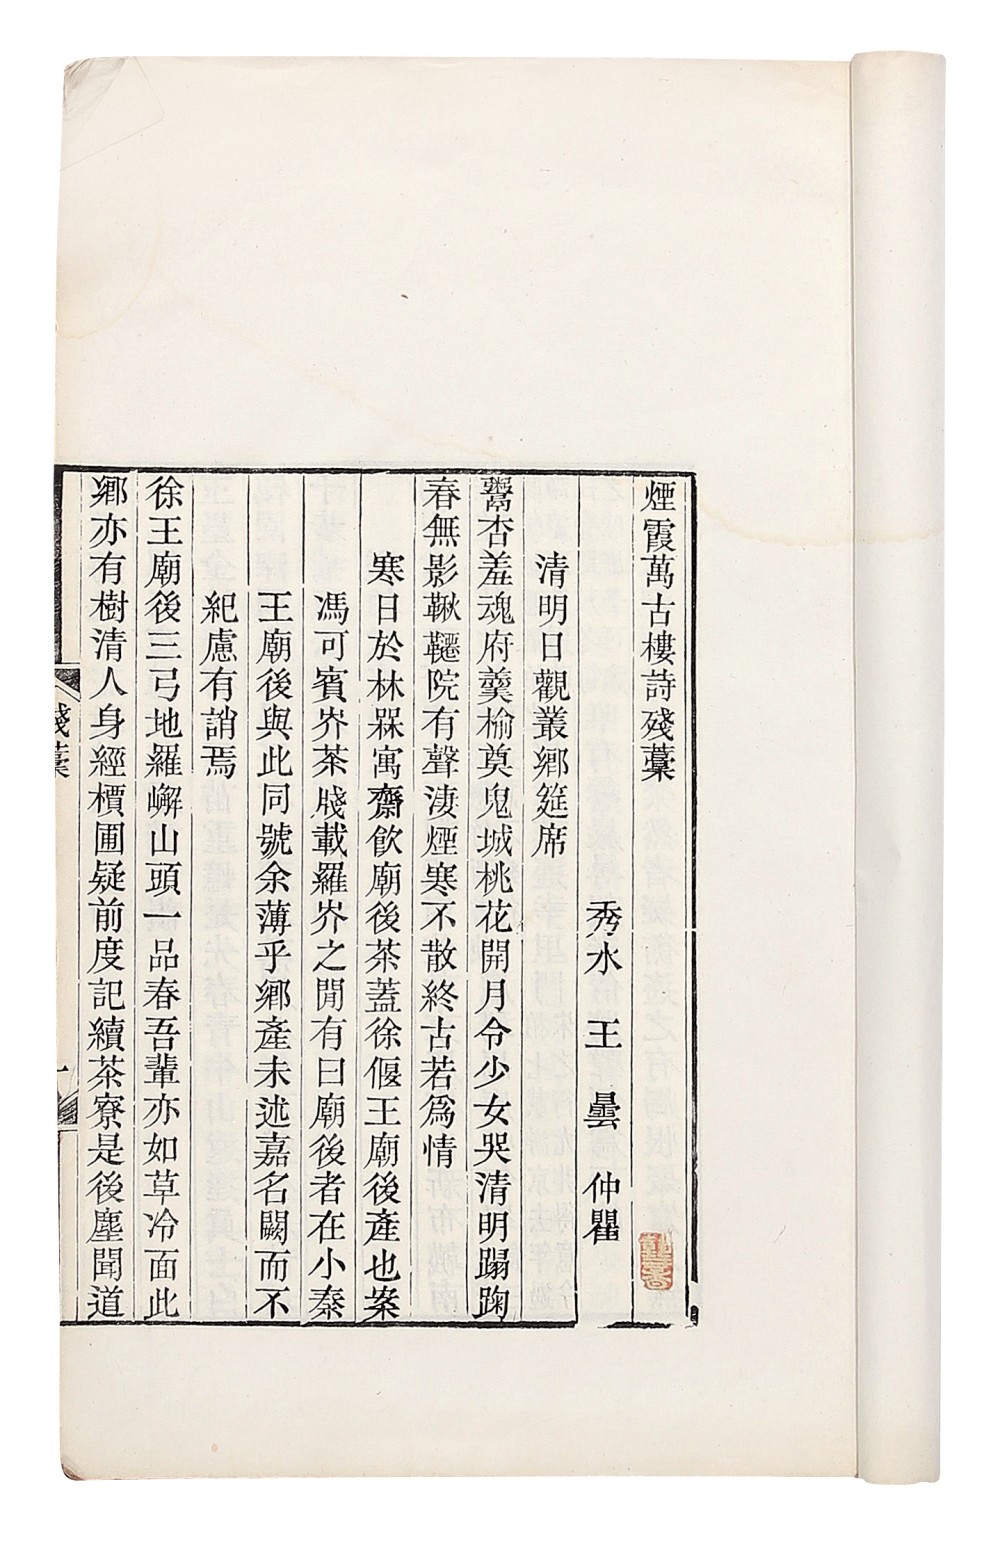 煙霞萬古樓詩殘藁
秀水 王 曇 仲瞿
清明日觀叢鄉筵席
鬻杏羞魂府羹榆奠鬼城桃花開月令少女哭清明蹋踘
春無影鞦韆院有聲淒煙寒不散終古若為情
寒日於林槑寓齋飲廟後茶蓋徐偃王廟後產也案
馮可賓岕茶牋載羅岕之閒有曰廟後者在小秦
王廟後與此同號余薄乎鄉產未述嘉名闕而不
紀慮有誚焉
徐王廟後三弓地羅嶰山頭一品春吾輩亦如草冷面此
鄉亦有樹清人身經檟圃疑前度記續茶寮是後塵聞道
殘藁
一